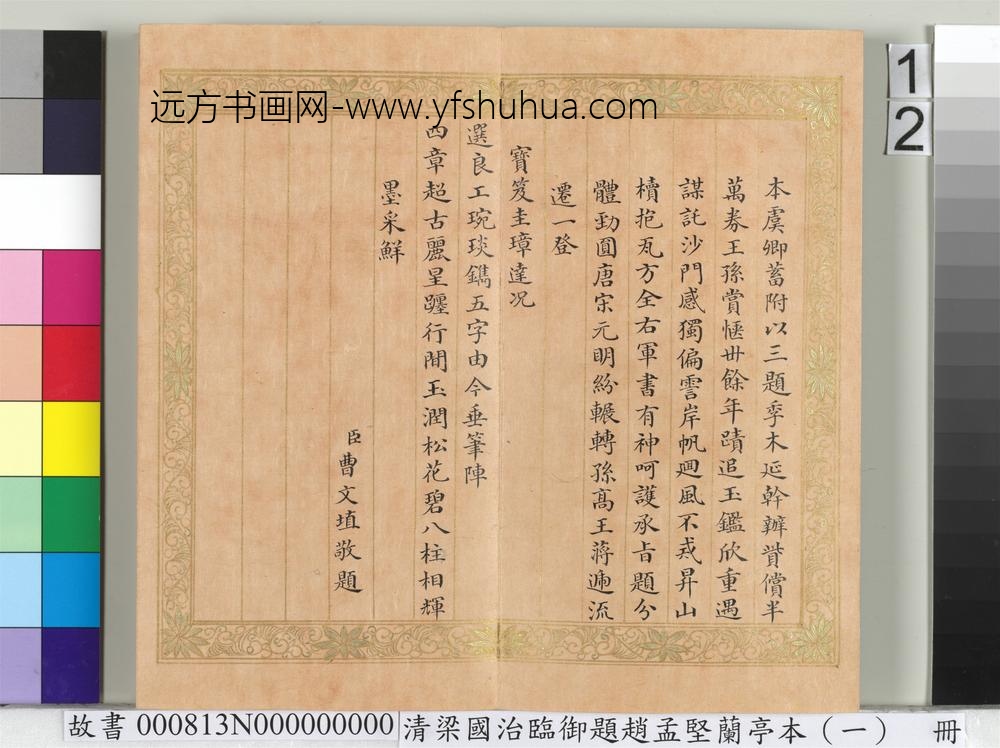 远方书画网-www.yfshuhua.com
1
2
本虞卿蓄附以三題季木延幹辦貲償半
萬券王孫賞愜卅餘年蹟追玉鑑欣重遇
謀託沙門感獨偏霅岸帆迴風不戒昇山
櫝抱瓦方全右軍書有神呵護承旨題分
體勁圓唐宋元明紛輾轉孫高王蔣遞流
遷一登
寶笈圭璋達况
選良工琬琰鐫五字由今垂筆陣
四章超古麗星躔行間玉潤松花碧八柱相輝
墨采鮮
臣曹文埴敬題
故書 000813N000000000 清梁國治臨御題趙孟堅蘭亭本（一） 冊